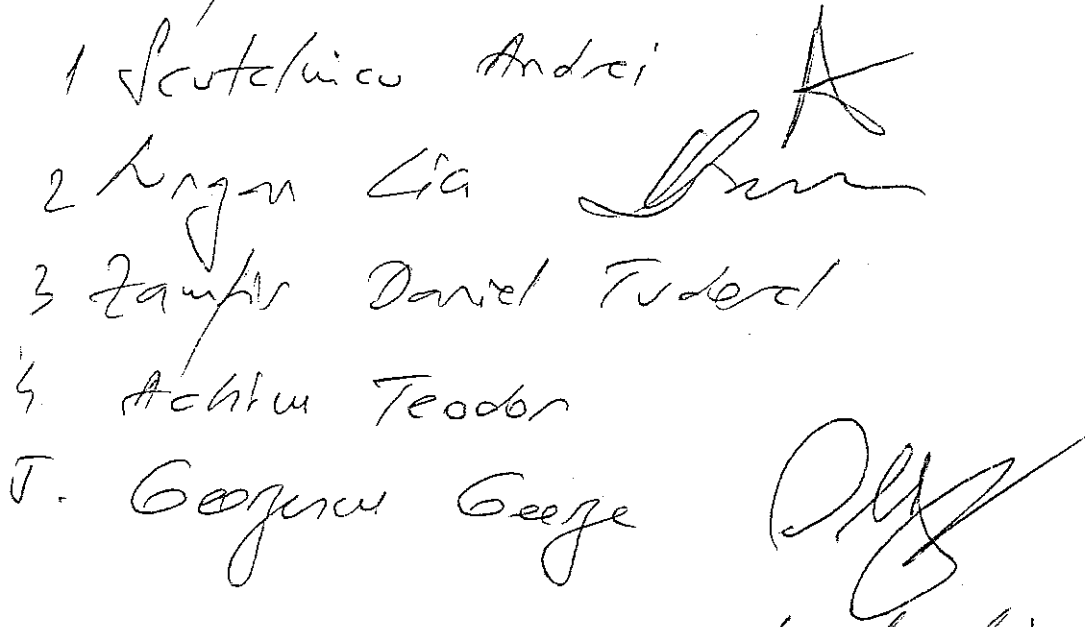 1 Scutelnicu Andrei
2 Lia
3 Zamfir Daniel Tudorel
4 Achim Teodor
5. Georgescu George